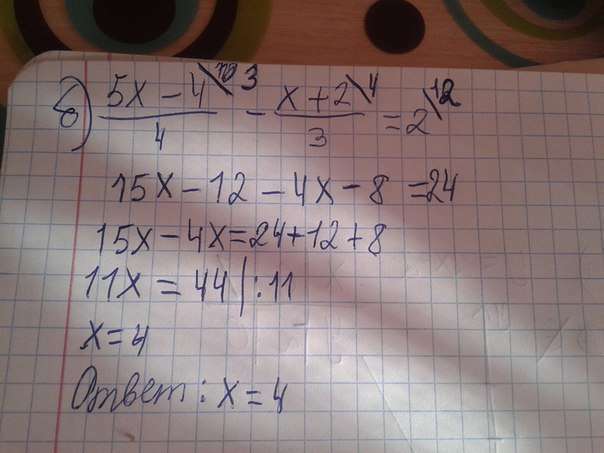 б) (5x - 4)/4 \3 - (x + 2)/3 \4 = 2 \12
15x - 12 - 4x - 8 = 24
15x - 4x = 24 + 12 + 8
11x = 44 | : 11
x = 4
Ответ: x = 4